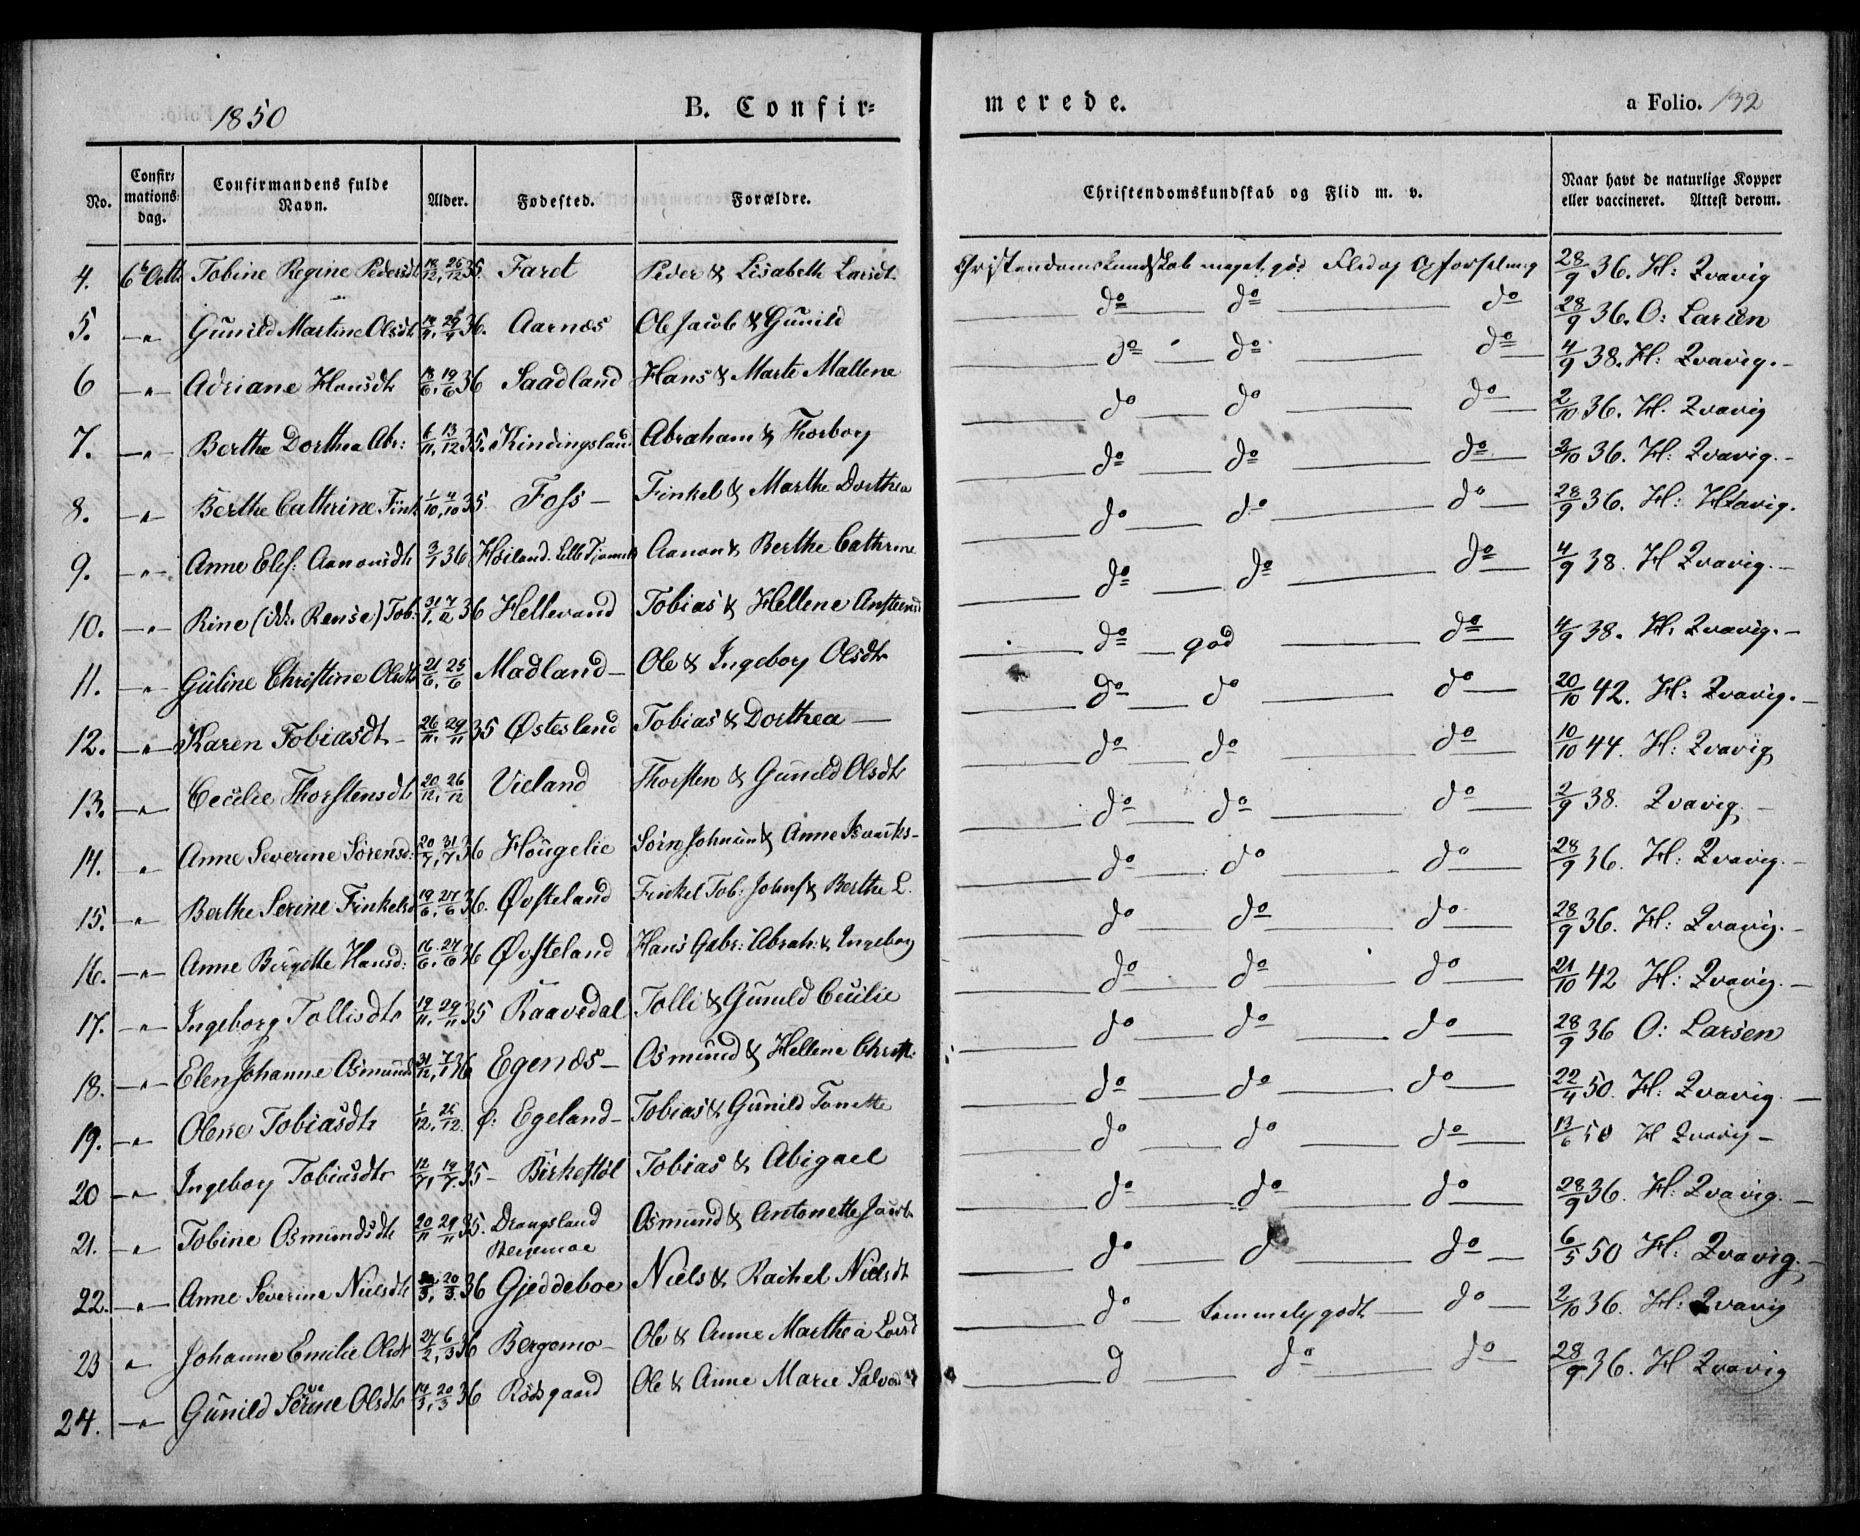 1850 B. Confir= merede. a Folio. 132
No. Confir= mations= dag. Confirmandens fulde Navn. Alder. Fødested. Forældre. Christendomskundskab og Flid m. v. Naar havt de naturlige Kopper eller vaccineret. Attest derom.
4. 6te Octb Tobine Regine Pedersdt 18/12, 26/12 35. Faret Peder & Lisabeth Larsdt. Christendomskundskab meget god Flid og Opførsel meg 28/9 36. H: Qvavig
5. —"— Gunild Martine Olsdt 36. Aarnæs Ole Jacob & Gunild do do do 28/9 36. O: Larsen
6 —"— Adriane Hansdtr 18/6, 19/6 36 Saadland Hans & Marte Mallene do do do 4/9 38. H: Qvavig. —
7. —"— Berthe Dorthea Abr: 6/11, 13/12 35. Kindingsland Abraham & Thorborg do do do 2/10 36. H. Qvavig
8. —"— Berthe Cathrine Fink 1/10, 4/10 35 Foss — Finkel & Marthe Dorthea do do do 2/10 36. H: Qvavig. —
9. —"— Anne Elis: Aanonsdt 3/1 36 Høiland. Aanon & Berthe Cathrine do do do 28/9 36. H: Qvavig.
10. —"— Rine (ikke Rense) Tob: 31/1, 7/2 36 Hellevand Tobias & Hellene do do do 4/9 38. H Qvavig. —
11. —"— Guline Christine Olsdt 21/6, 25/6 Madland — Ole & Ingeborg Olsdtr do god do 4/9 38. H: Qvavig. —
12. —"— Karen Tobiasdt — 26/11, 29/11 35 Østesland Tobias & Dorthea — do do do 20/10 42. H: Qvavig. —
13. —"— Cecilie Thorstensdt 20/12, 26/12 Vieland Thorsten & Gunild Olsdtr do do do 10/10 44. H: Qvavig
14. " Anne Severine Sørensd: 20/7, 31/7 36 Hougelie Sørn Johnsen & Anne do do do 2/9 38. Qvavig. —
15. —"— Berthe Serine Finkelsd 19/6, 27/6 36. Øvsteland Finkel Tob. Johns & Berthe L. do do do 28/9 36. H: Qvavig. —
16. —"— Anne Birgitte Hansd: 16/6, 27/6 36 Øvsteland Hans Gabr: Abrah: & Ingeborg do do do 28/9 36. H: Qvavig. —
17. —"— Ingeborg Tollisdtr 19/11, 29/11 35 Raavedal Tolli & Gunild Cecilie do do do 21/10 42 H: Qvavig. —
18. —"— Elen Johanne Osmunds 31/12, 7/1 36 Egenæs — Osmund & Hellene Christ: do do do 28/9 36 O: Larsen
19. —"— Olene Tobiasdtr 1/12, 26/12. Ø: Egeland — Tobias & Gunild Tonette do do do 22/4 50. H: Qvavig. —
20 —"— Ingeborg Tobiasdtr 12/7, 19/7 35 — Birkestøl Tobias & Abigael do do do 13/6 50 H Qvavig —
21. —"— Tobine Osmundsdtr 20/11, 29/11 35. Drangsland Bergemoe Osmund & Antonette Jacob do do do 28/9 36. H: Qvavig. —
22. —"— Anne Severine Nielsdtr 20/3. 36 Gjeddeboe Niels & Rachel Nielsdt do do do 6/5 50 H: Qvavig. —
23 " Johanne Emilie Olsdt 27/2, 6/3 36 Bergemo — Ole & Anne Marthea Larsd do temmelig godt do 2/10 36. H: Qvavig
24. —"— Gunild Serine Olsdtr 14/3, 20/3 36 Rødsgaard Ole & Anne Marie Salves do do do 28/9 36. H Qvavig